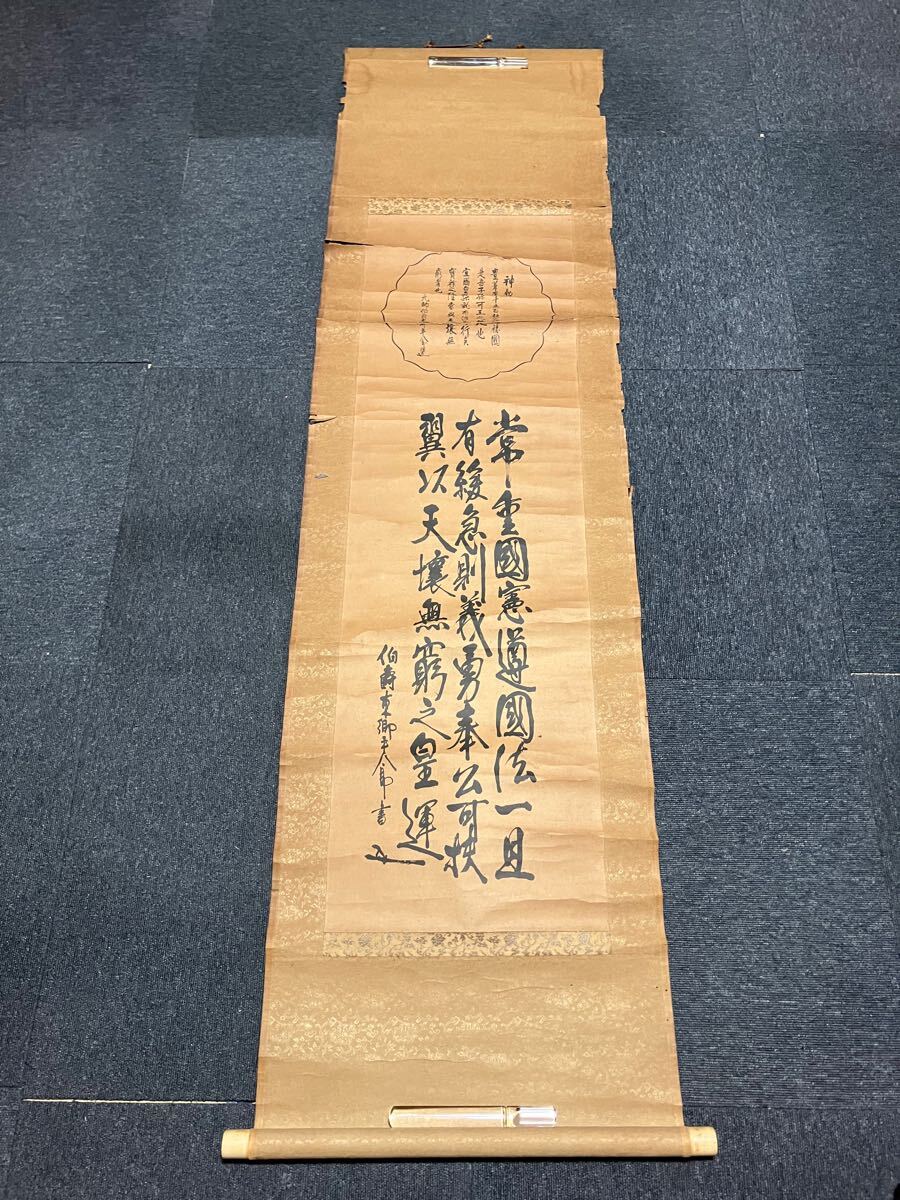 神勅
豊葦原千五百秋之瑞穂國
是吾子孫可王之地也
宜爾皇孫就而治焉行矣
寶祚之隆當與天壤無
窮者也
常重國憲遵國法一旦
有緩急則義勇奉公可扶
翼以天壤無窮之皇運
伯爵東郷平八郎書